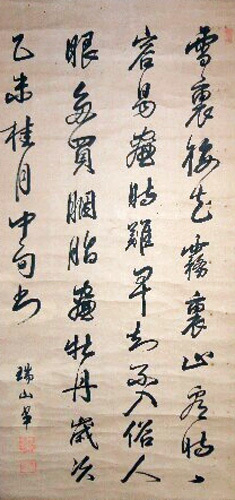 雪裏梅花霧裏山看時
容易畫時難早知不入俗人
眼多買胭脂畫牡丹歲次
乙未桂月中旬書
瑞山